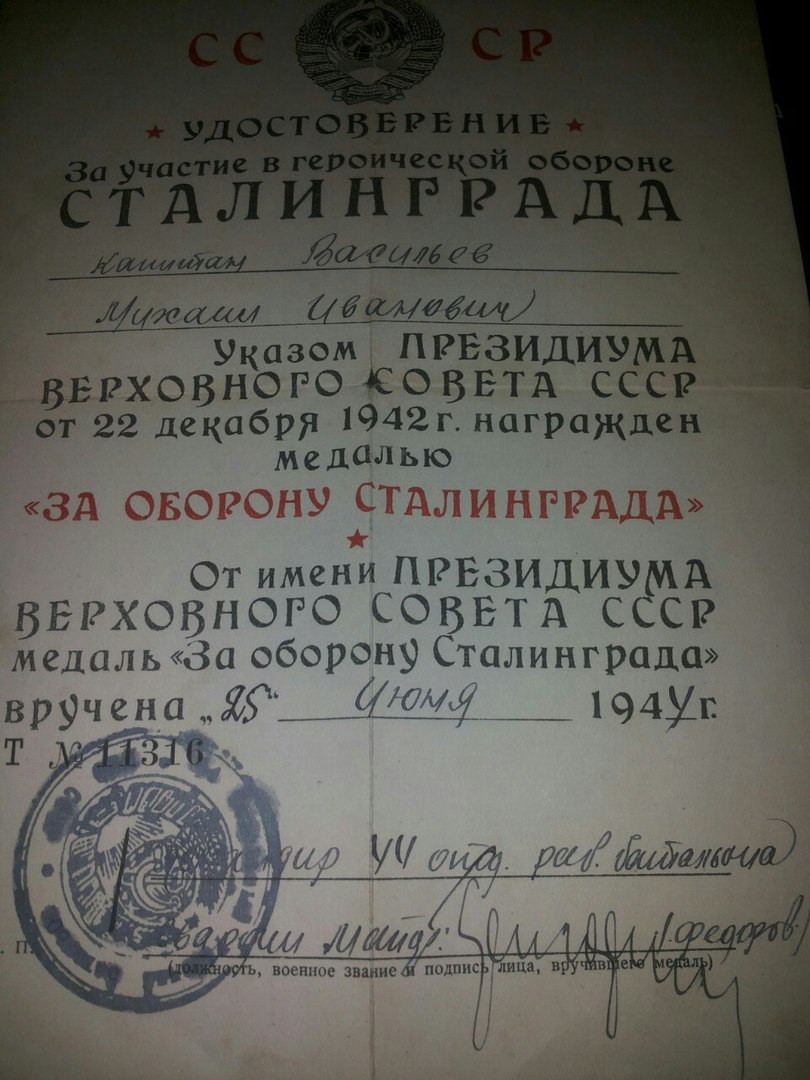 СССР
★ УДОСТОВЕРЕНИЕ ★
За участие в героической обороне
СТАЛИНГРАДА
капитан Васильев
Михаил Иванович
Указом ПРЕЗИДИУМА
ВЕРХОВНОГО СОВЕТА СССР
от 22 декабря 1942 г. награжден
медалью
«ЗА ОБОРОНУ СТАЛИНГРАДА»
★
От имени ПРЕЗИДИУМА
ВЕРХОВНОГО СОВЕТА СССР
медаль «За оборону Сталинграда»
вручена „25“ Июня 1944 г.
Т № 11316
Командир 44 отд. раб. батальона
гвардии майор: (Федоров)
(должность, военное звание и подпись лица, вручившего медаль)